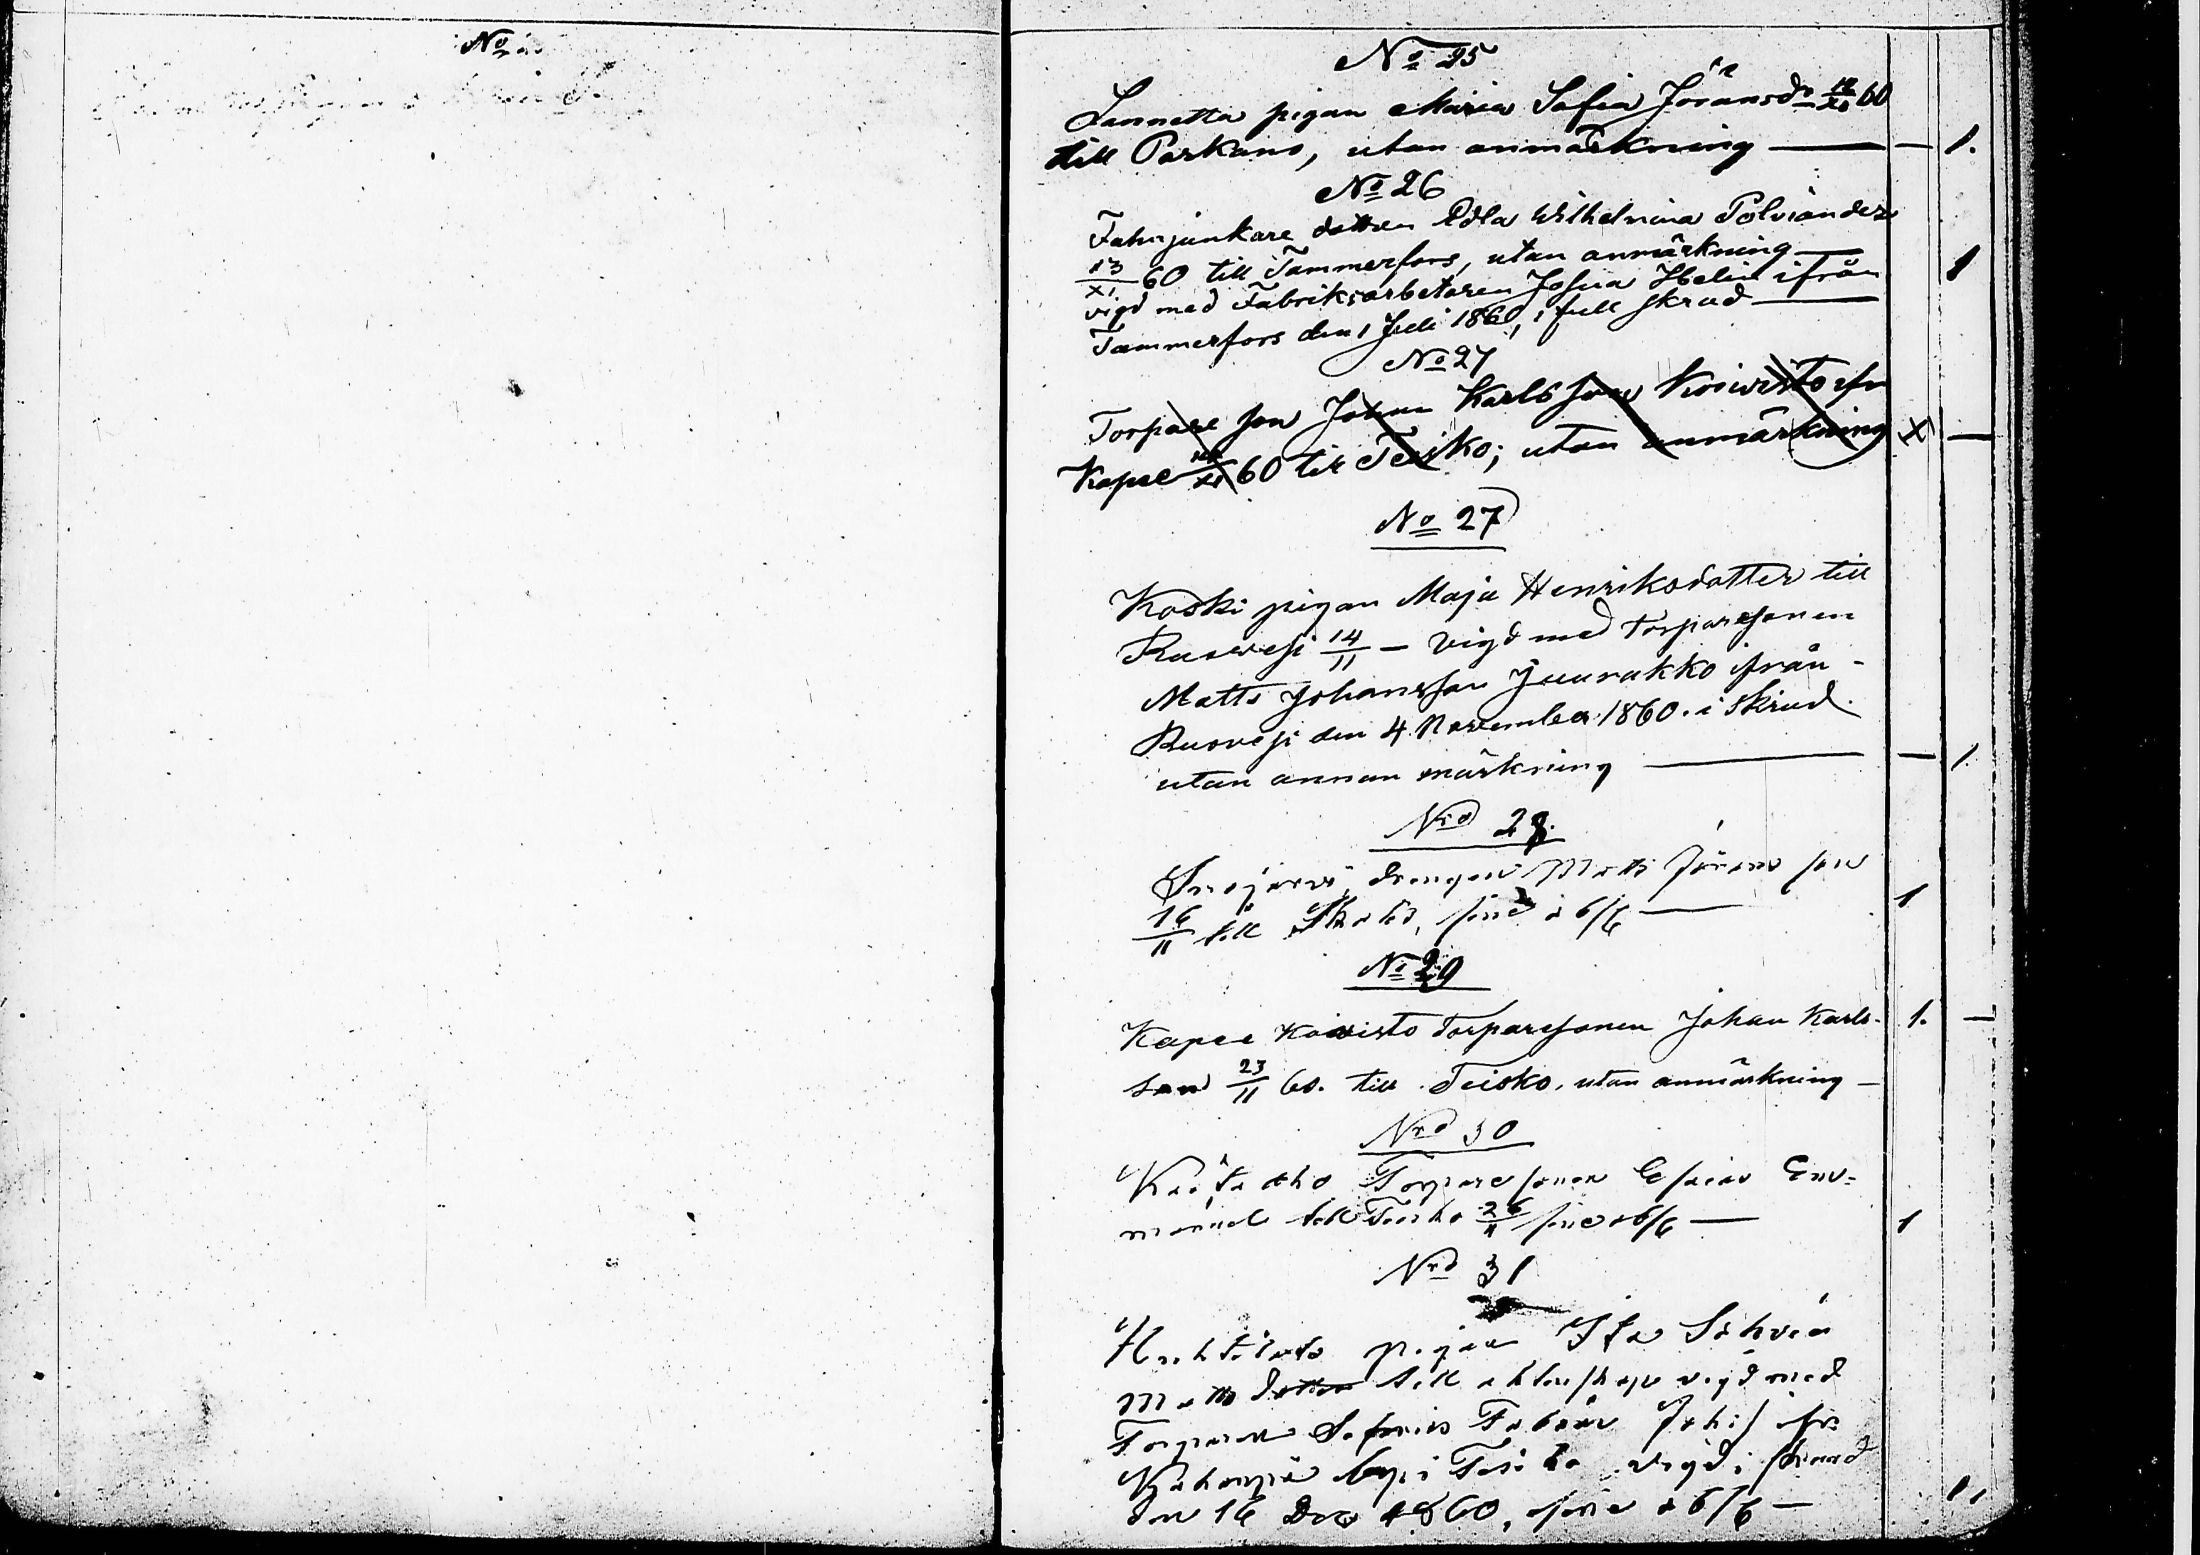 No
No 25
Lannetta pigan Maria Sofia Jöransdr 12/XI 60
till Parkano, utan anmärkning — — 1.
No 26
Fahnjunkare dottren Edla Wilhelmina Polviander
13/XI 60 till Tammerfors, utan anmärkning — 1
vigd med Fabriksarbetaren Josua Helin ifrån
Tammerfors den 1 Juli 1860, i full skrud —
No 27
Torpare son Johan Karlsson Koivisto ifrn
Kapee XI 60 till Teisko; utan anmärkning X —
No 27
Koski pigan Maja Henriksdotter till
Ruovesi 14/11 — vigd med Torparesonen
Matts Johansson Juurakko ifrån -
Ruovesi den 4 November 1860. i skrud.
utan annan märkning — — 1
Nro 28.
drengen Matts Jörans son
16/11 till 1
No 29
Kapee Koivisto Torparesonen Johan Karls- 1. —
son 23/11 60. till Teisko. utan anmärkning —
Nro 30
Torparesonen Esaias Em=
manuel till Teisko 26/11 — 1
Nro 31
pigan
Matts dotter till äktenskap vigd med
Fabian
vigd i skrud
den 16 Dec 1860, — 1.